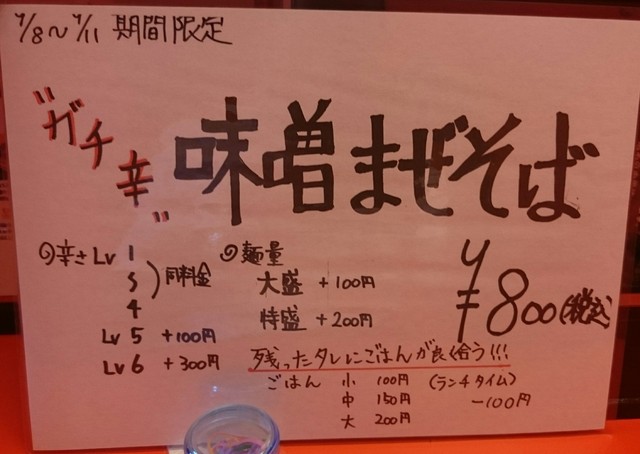 1/8~1/11 期間限定
"ガチ辛"
味噌まぜそば
◎辛さLv 1
~
4
同料金
Lv 5 +100円
Lv 6 +300円
◎麺量
大盛 +100円
特盛 +200円
¥800(税込)
残ったタレにごはんが良く合う!!!
ごはん 小 100円 (ランチタイム)
中 150円 -100円
大 200円